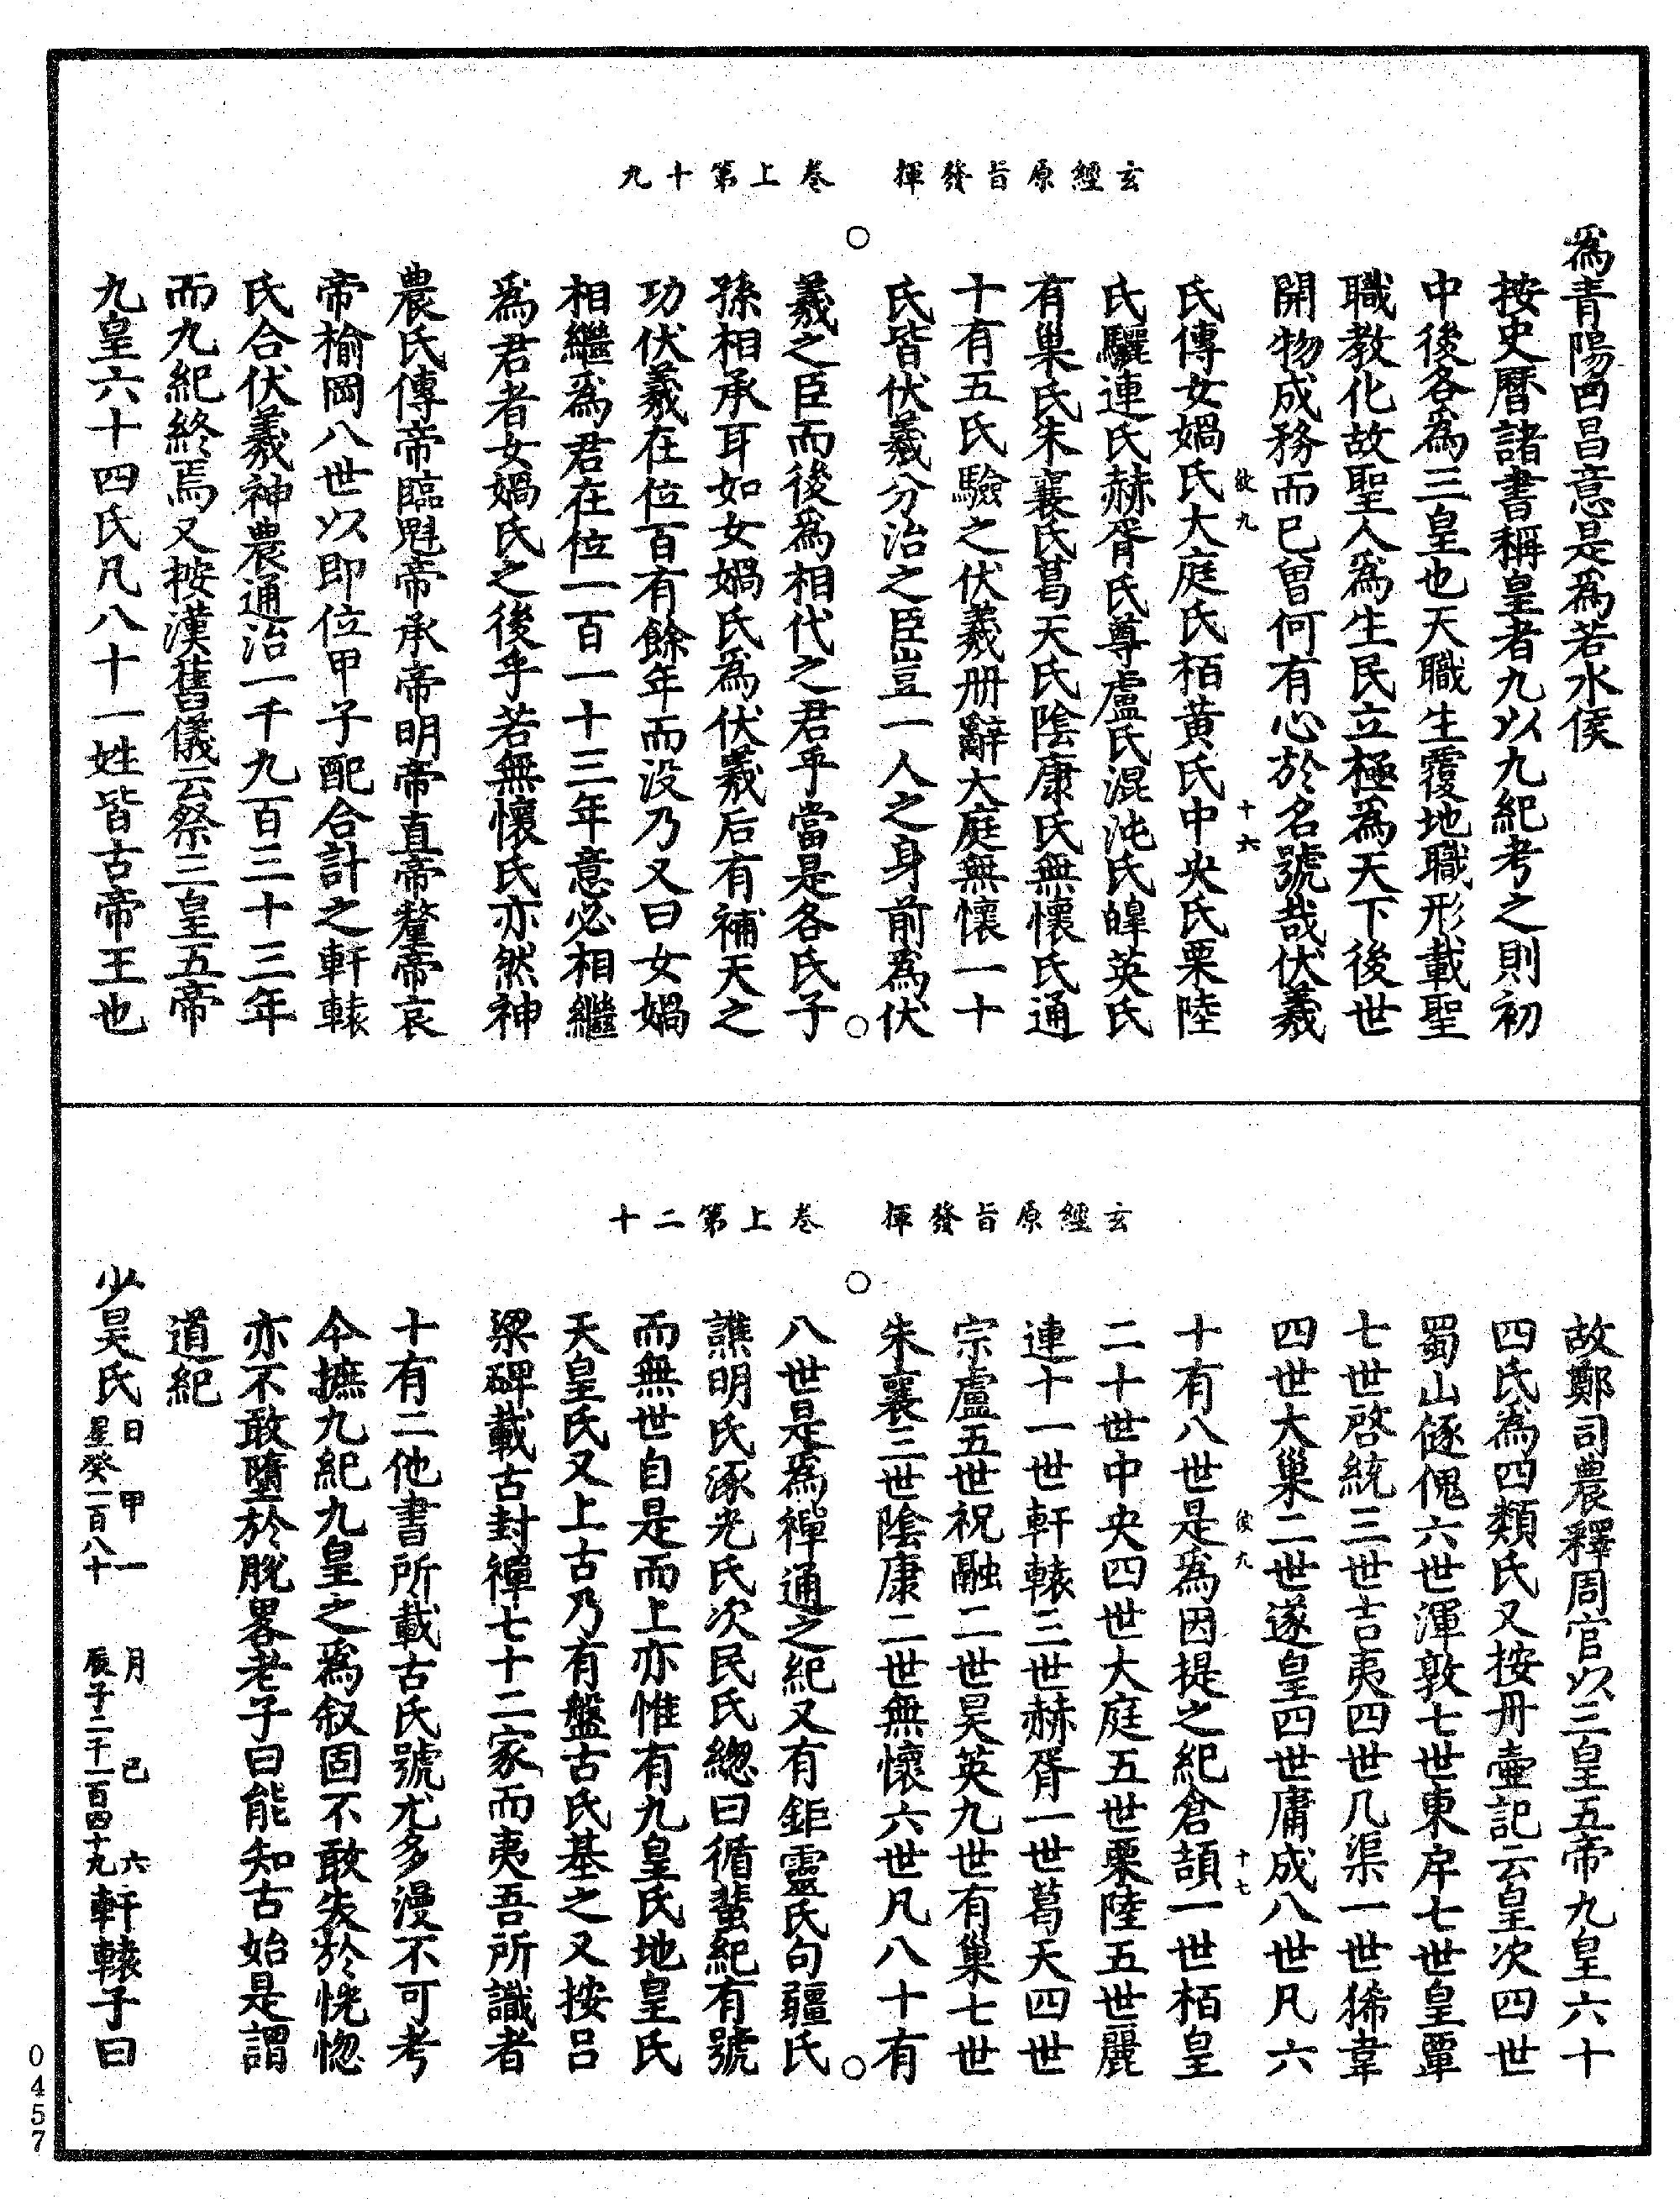 玄經原旨發揮　卷上第十九
為青陽酉昌意是為若水侯
按史曆諸書稱皇者九以九紀考之則初
中後各為三皇也天職生覆地職形載聖
職教化故聖人為生民立極為天下後世
開物成務而已曾何有心於名號哉伏羲
彼九　十六
氏傳女媧氏大庭氏栢黃氏中央氏栗陸
氏驪連氏赫胥氏尊盧氏混沌氏皡英氏
有巢氏朱襄氏葛天氏陰康氏無懷氏通
十有五氏驗之伏羲册辭大庭無懷一十
氏皆伏羲分治之臣豈一人之身前為伏
羲之臣而後為相代之君乎當是各氏子
孫相承耳如女媧氏為伏羲后有補天之
功伏羲在位百有餘年而没乃又曰女媧
相繼為君在位一百一十三年意必相繼
為君者女媧氏之後乎若無懷氏亦然神
農氏傳帝臨魁帝承帝明帝直帝釐帝哀
帝榆岡八世以即位甲子配合計之軒轅
氏合伏羲神農通治一千九百三十三年
而九紀終焉又按漢舊儀云祭三皇五帝
九皇六十四氏凡八十一姓皆古帝王也
玄經原旨發揮　卷上第二十
故鄭司農釋周官以三皇五帝九皇六十
四氏為四類氏又按丹壺記云皇次四世
蜀山傂傀六世渾敦七世東戶七世皇覃
七世啓統三世吉夷四世几渠一世狶韋
四世大巢二世遂皇四世庸成八世凡六
彼九　十七
十有八世是為因提之紀倉頡一世栢皇
二十世中央四世大庭五世栗陸五世麗
連十一世軒轅三世赫胥一世葛天四世
宗盧五世祝融二世昊英九世有巢七世
朱襄三世陰康二世無懷六世凡八十有
八世是為禪通之紀又有鉅靈氏句疆氏
譙明氏涿光氏次民氏緫曰循蜚紀有號
而無世自是而上亦惟有九皇氏地皇氏
天皇氏又上古乃有盤古氏基之又按呂
梁碑載古封禪七十二家而夷吾所識者
十有二他書所載古氏號尤多漫不可考
今摭九紀九皇之為叙固不敢失於恍惚
亦不敢墮於脫畧老子曰能知古始是謂
道紀
少昊氏日甲一　月己六
星癸一百八十　辰子二千一百四十九軒轅子曰
0457